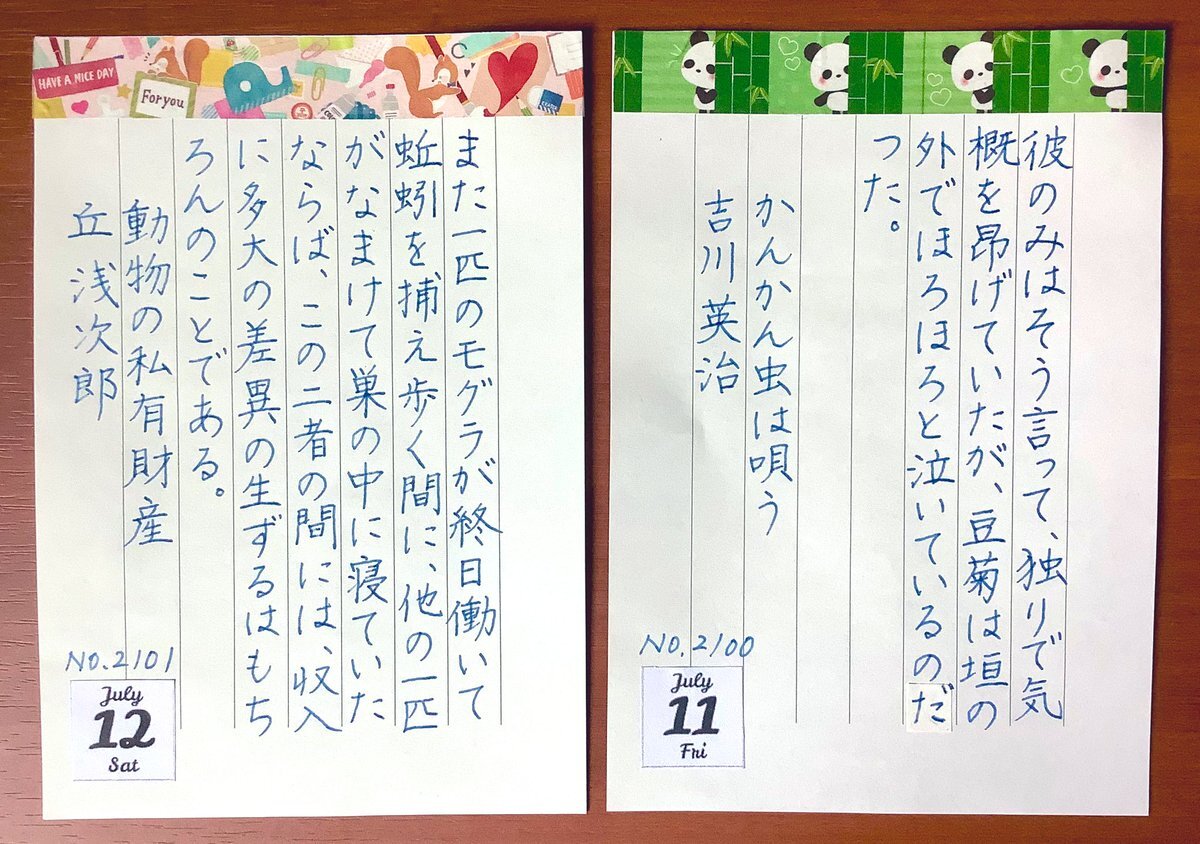 彼のみはそう言って、独りで気
概を昂げていたが、豆菊は垣の
外でほろほろと泣いているのだ
った。
かんかん虫は唄う
吉川英治
NO.2100
July
11
Fri
HAVE A NICE DAY
For you
また一匹のモグラが終日働いて
蚯蚓を捕え歩く間に、他の一匹
がなまけて巣の中に寝ていた
ならば、この二者の間には、収入
に多大の差異の生ずるはもち
ろんのことである。
動物の私有財産
丘浅次郎
NO.2101
July
12
Sat